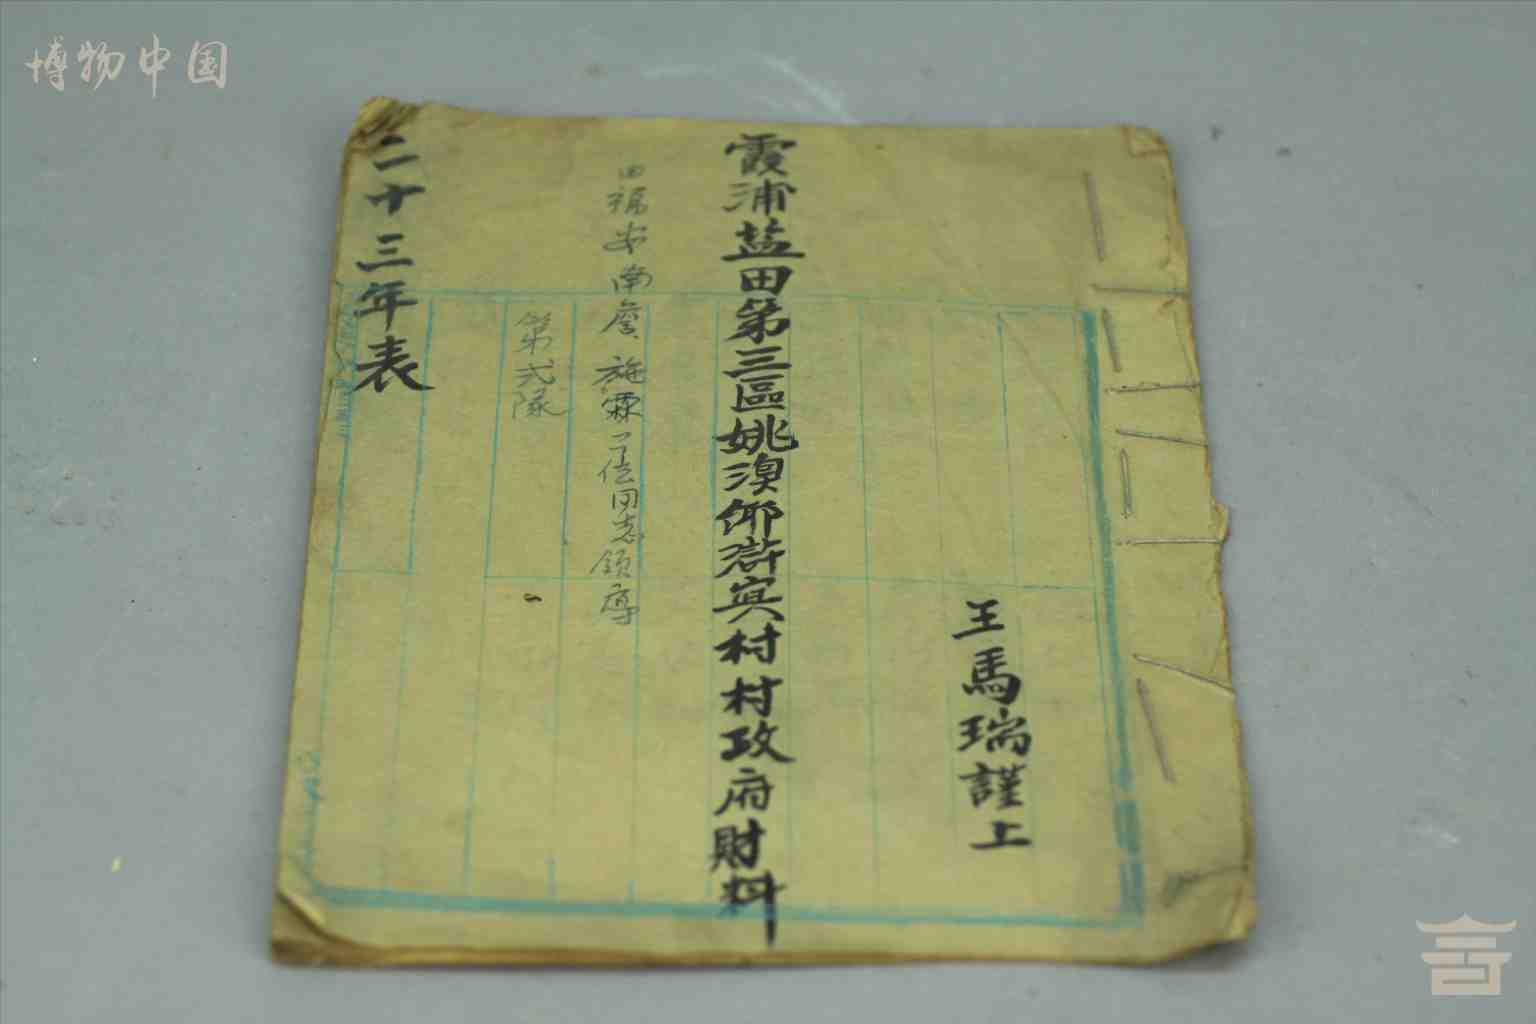 博物中国
王馬瑞謹上
霞浦盐田第三區姚澳仰滸宾村村政府財料
由福安南詹、施霖二位同志領導
第弍隊
二十三年表